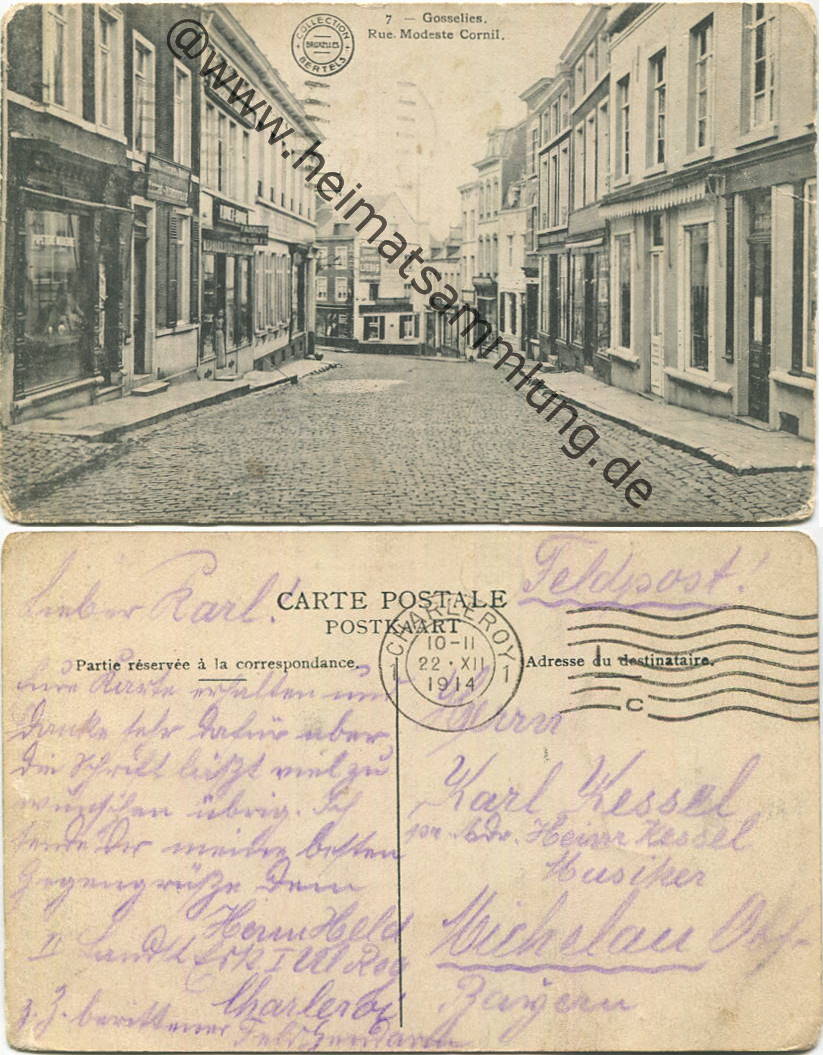 7 — Gosselies.
Rue Modeste Cornil.
COLLECTION BERTELS
BRUXELLES
@www.heimatsammlung.de
Feldpost!
Lieber Karl!
CARTE POSTALE
POSTKAART
CHARLEROY 1
10-11
22·XII
1914
C
Partie réservée à la correspondance.
Adresse du destinataire.
Karte erhalten und
danke sehr dafür aber
die Schrift läßt viel zu
wünschen übrig. Ich
sende Dir meine besten
Gegengrüße Dein
Herm Held
Charleroi
z. Z. berittener Feldgendarm
Herrn
Karl Kessel
pr. Adr. Heinr Kessel
Musiker
Michelau Obf.
Bayern